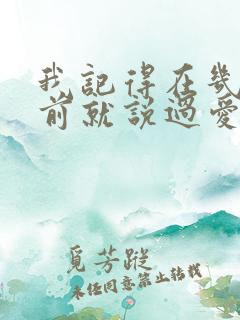 我記得在幾
前就說過愛
覓芳蹤
未經同意禁止轉載